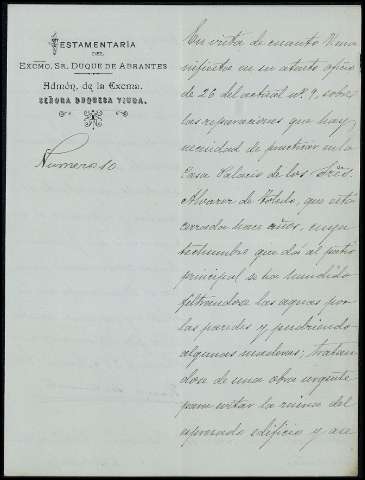 TESTAMENTARÍA
DEL
EXCMO. SR. DUQUE DE ABRANTES
Admón. de la Excma.
SEÑORA DUQUESA VIUDA.
Numero 10.
En vista de cuanto V. ma
nifiesta en su atento oficio
de 26 del actual nº. 9, sobre
las reparaciones que hay
necesidad de practicar en la
Casa Palacio de los Sres.
Alvarez de Toledo, que está
cerrada hace años, cuya
techumbre que dá al patio
principal se ha hundido
filtrandose las aguas por
las paredes y pudriendo
algunas maderas; tratan
dose de una obra urgente
para evitar la ruina del
espresado edificio y ase